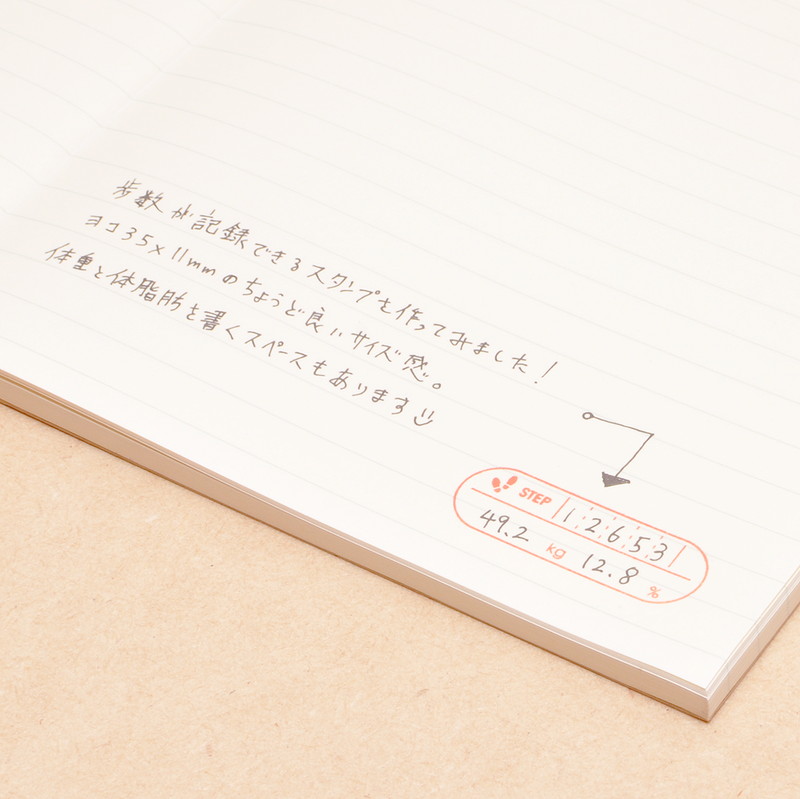 歩数が記録できるスタンプを作ってみました！
ヨコ35×11mmのちょうど良いサイズ感。
体重と体脂肪を書くスペースもあります
STEP 12653
49.2 kg 12.8 %